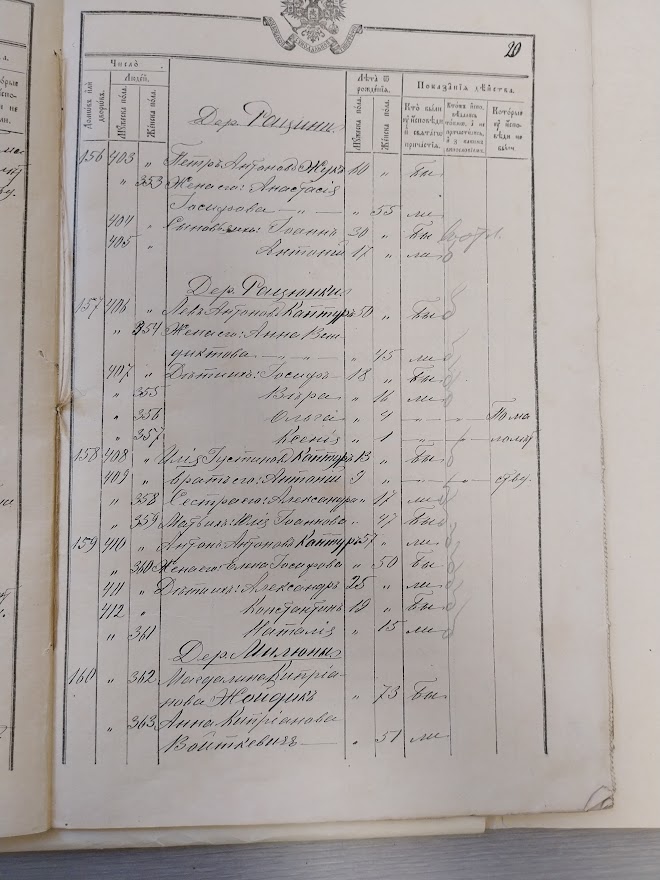 20
Число
Людей.
Лѣта ѿ рожденія.
Показанія дѣйства.
Домовъ или дворовъ.
Мужеска пола.
Женска пола.
Мужеска пола.
Женска пола.
Кто были у исповѣди и святаго причастія.
Которые у исповѣди не были.
Дер. Рацини
156 403 „ Петръ Антоновъ Жукъ 60 „ Бы
„ 353 Жена его: Анастасія
Іосифова „ 55 ли
404 „ Сыновья ихъ: Іоаннъ 30 „ Бы
405 „ Антоній 17 „ ли
Дер. Рацюнки
157 406 „ Левъ Антоновъ Кантуръ 50 „ Бы
„ 354 Жена его: Анна Вен
диктова „ 45 ли
407 „ Дѣти ихъ: Іосифъ 18 „ Бы
„ 355 Вѣра „ 16 ли
„ 356 Ольга „ 4 „ „ По ма
„ 357 Ксенія „ 1 „ „ лолѣт
158 408 „ Илія Іустиновъ Кантуръ 13 „ Бы
409 „ Братъ его: Антоній 9 „ „ „ ству.
„ 358 Сестра его: Александра „ 17 ли
„ 359 Мать ихъ: Юлія Іоаннова „ 47 Бы
159 410 „ Антонъ Антоновъ Кантуръ 57 „ ли
„ 360 Жена его: Елена Іосифова „ 50 Бы
411 „ Дѣти ихъ: Александръ 25 „ ли
412 „ Константинъ 19 „ Бы
„ 361 Наталія „ 15 ли
Дер. Милюни
160 „ 362 Магдалина Кипріа-
нова Жондикъ „ 73 Бы
„ 363 Анна Кипріанова
Войткевичъ „ 51 ли